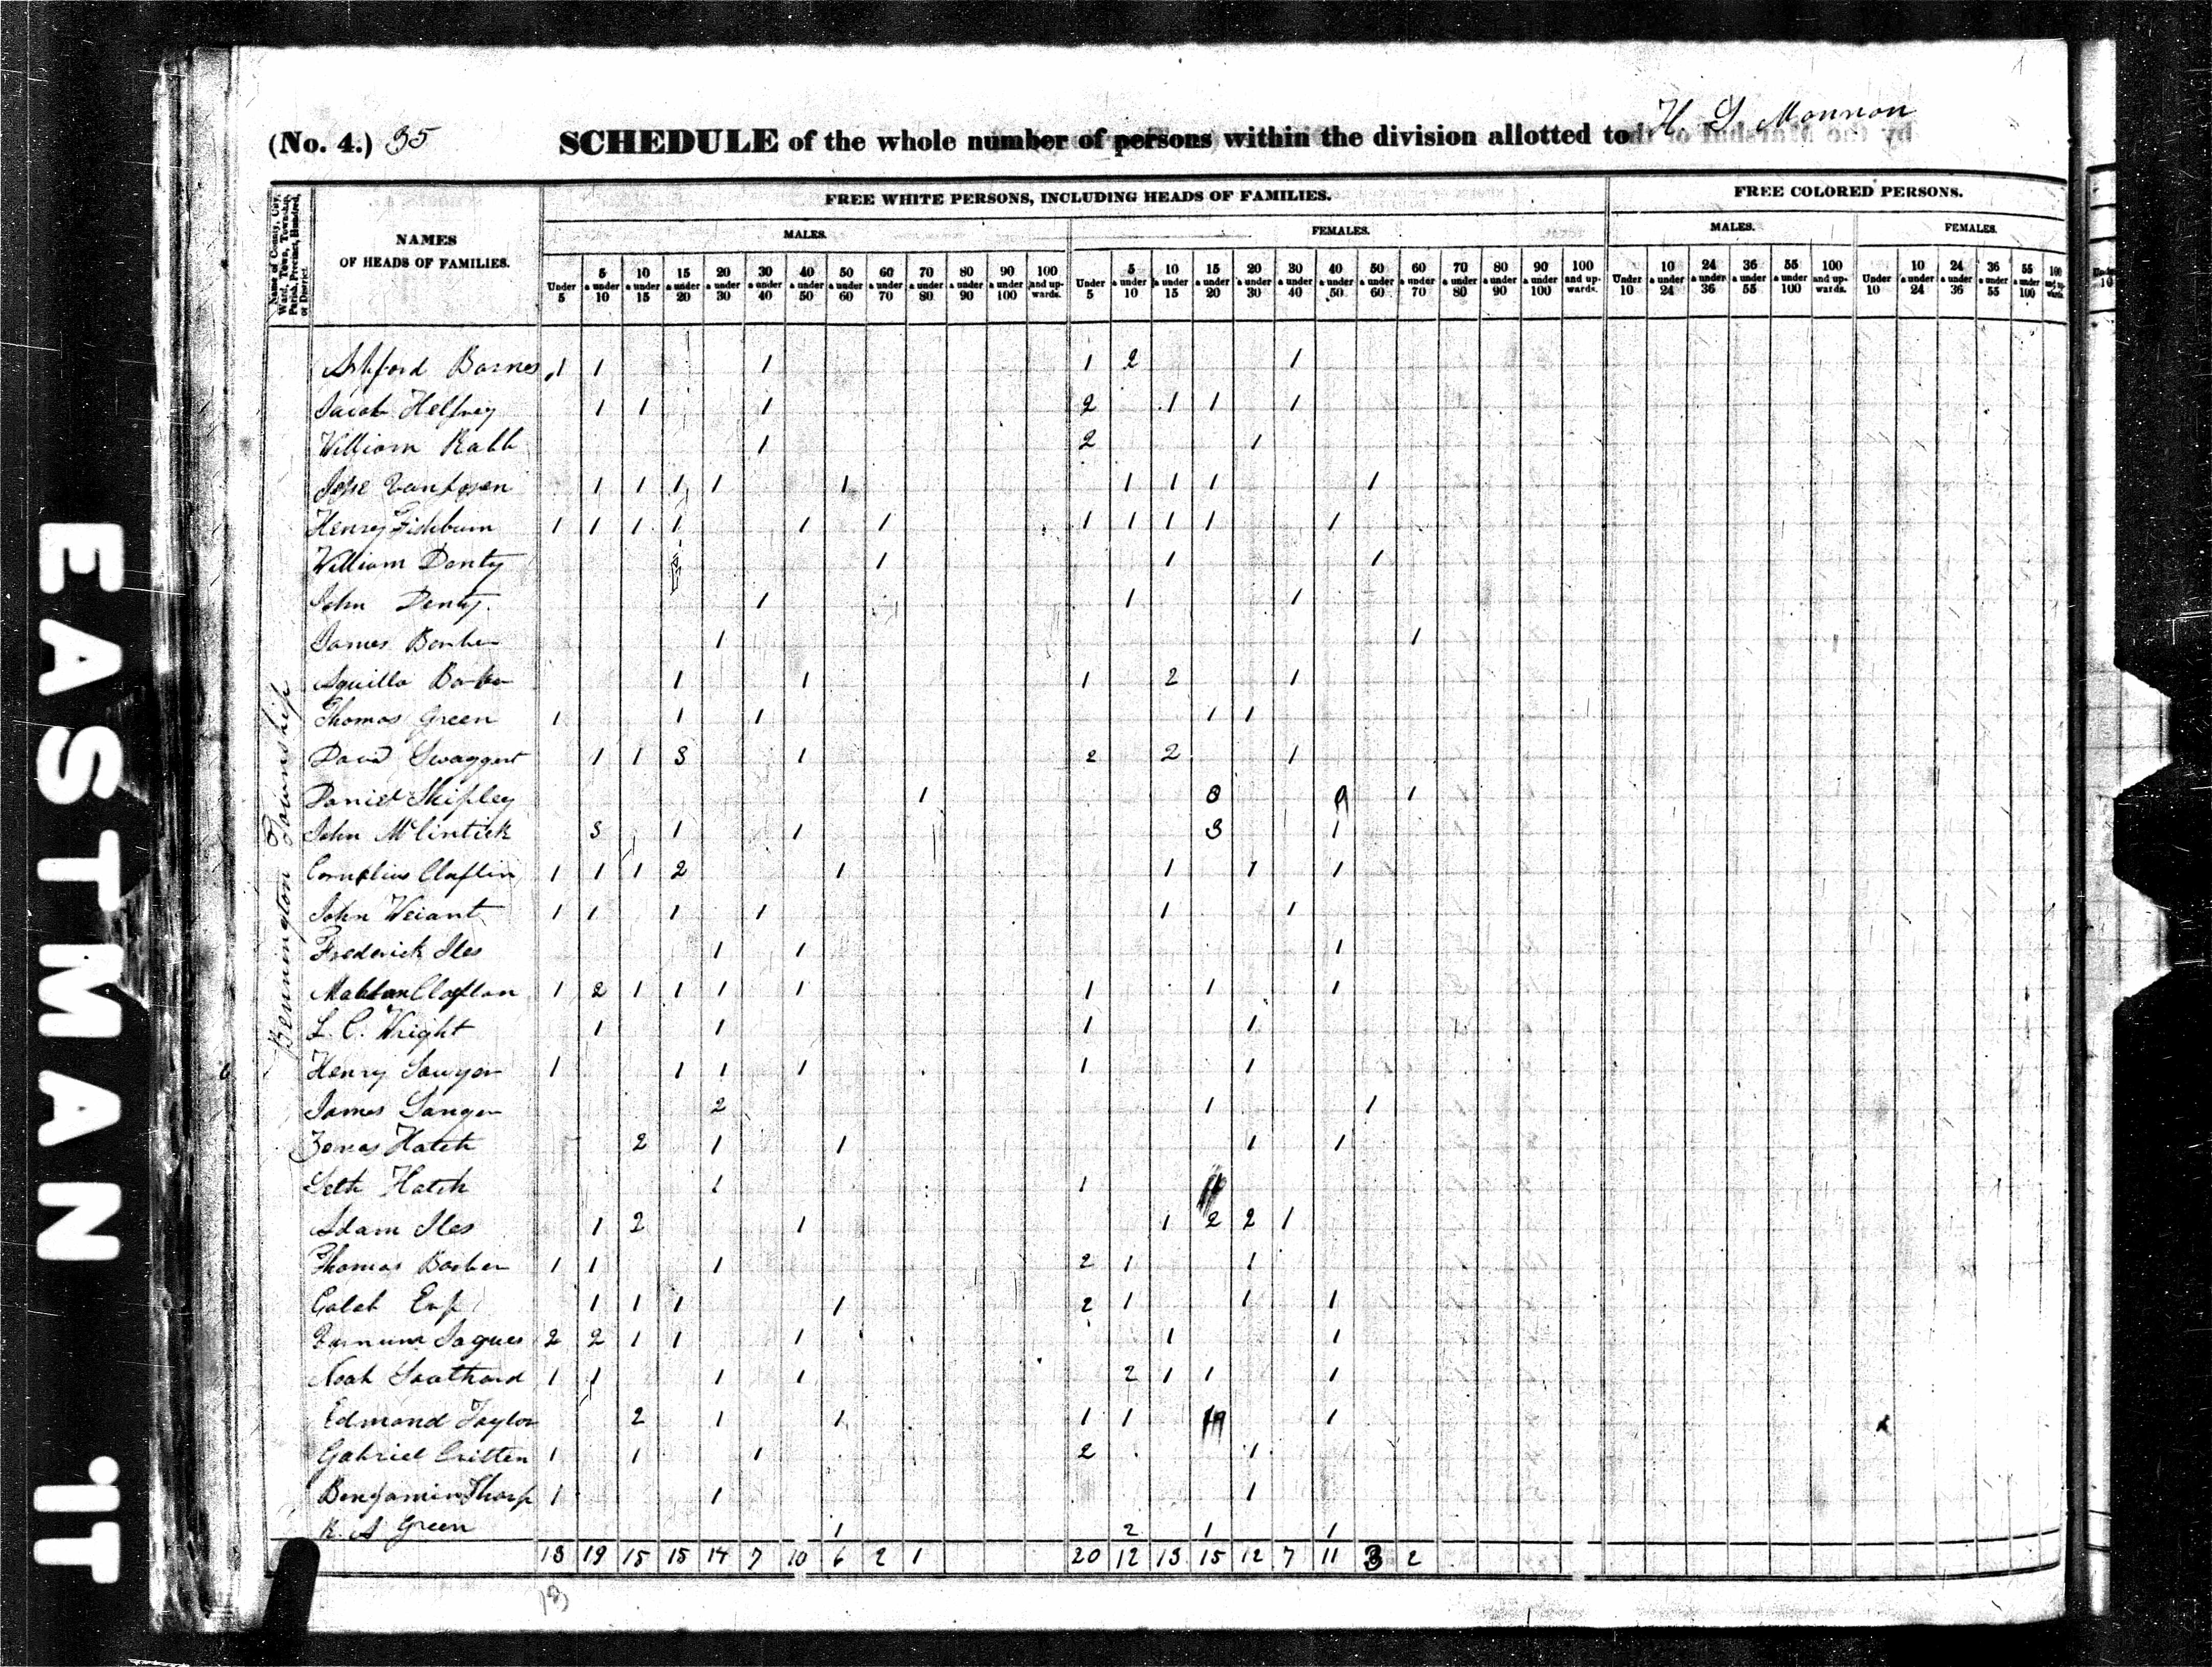 (No. 4.) 35 SCHEDULE of the whole number of persons within the division allotted to H S
Name of County, City, Ward, Town, Township, Parish, Precinct, Hundred, or District.
NAMES OF HEADS OF FAMILIES.
FREE WHITE PERSONS, INCLUDING HEADS OF FAMILIES.
FREE COLORED PERSONS.
MALES. FEMALES. MALES. FEMALES.
Under 5 | 5 & under 10 | 10 & under 15 | 15 & under 20 | 20 & under 30 | 30 & under 40 | 40 & under 50 | 50 & under 60 | 60 & under 70 | 70 & under 80 | 80 & under 90 | 90 & under 100 | 100 and upwards.
Under 5 | 5 & under 10 | 10 & under 15 | 15 & under 20 | 20 & under 30 | 30 & under 40 | 40 & under 50 | 50 & under 60 | 60 & under 70 | 70 & under 80 | 80 & under 90 | 90 & under 100 | 100 and upwards.
Under 10 | 10 & under 24 | 24 & under 36 | 36 & under 55 | 55 & under 100 | 100 and upwards.
Under 10 | 10 & under 24 | 24 & under 36 | 36 & under 55 | 55 & under 100 | 100 and upwards.
Bennington Township
Ashford Barnes 1 1 1 1 2 1
Jacob Helfrey 1 1 1 2 1 1 1
William Rabb 1 2 1
Jesse 1 1 1 1 1 1 1 1 1
Henry Fishburn 1 1 1 1 1 1 1 1 1 1 1
William Denty 1 1 1
John Denty 1 1 1
James Barber 1 1
Aquilla Barber 1 1 1 2 1
Thomas Green 1 1 1 1 1
David Swaggert 1 1 3 1 2 2 1
Daniel Shipley 1 1
John McClintick 3 1 1 3 1
Cornelius Claflin 1 1 1 2 1 1 1 1
John Weiant 1 1 1 1 1 1
Frederick Iles 1 1 1
Claflan 1 2 1 1 1 1 1 1 1
L. C. Wright 1 1 1 1
Henry Sawyer 1 1 1 1 1 1
James Sanger 2 1 1
Zenas Hatch 2 1 1 1 1
Seth Hatch 1 1
Adam Iles 1 2 1 1 2 2 1
Thomas Barber 1 1 1 2 1 1
Galab Evp 1 1 1 1 2 1 1 1
Farnum Jaques 2 2 1 1 1 1 1
Noah Southard 1 1 1 1 2 1 1 1
Edmond Taylor 2 1 1 1 1 1
Gabriel Critten 1 1 1 2 1
Benjamin Tharp 1 1 1
R. A Green 1 2 1 1
13 19 15 15 14 7 10 6 2 1 20 12 13 15 12 7 11 3 2
13
EASTMAN